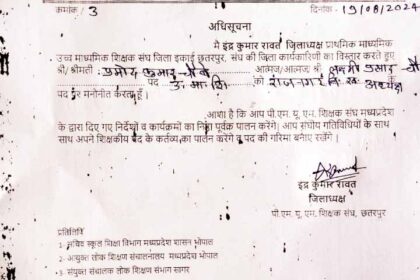 क्रमांक / 3 दिनांक - 19/08/2024
अधिसूचना
मै इंद्र कुमार रावत जिलाध्यक्ष प्राथमिक माध्यमिक
उच्च माध्यमिक शिक्षक संघ जिला इकाई छतरपुर, संघ की जिला कार्यकारिणी का विस्तार करते हुए
श्री/श्रीमती प्रमोद कुमार आत्मज/आत्मजा श्री लक्ष्मी प्रसाद
पद उ. मा. शि को राजनगर वि. ख. अध्यक्ष के
पद पर मनोनीत करता हूँ।
आशा है कि आप पी.एम.यू.एम. शिक्षक संघ मध्यप्रदेश
के द्वारा दिए गए निर्देशों व कार्यक्रमों का निष्ठा पूर्वक पालन करेंगे। आप संघीय गतिविधियों के साथ
साथ अपने शिक्षकीय पद के कर्तव्य का पालन करेंगे व पद की गरिमा बनाए रखेंगे।
इंद्र कुमार रावत
जिलाध्यक्ष
पी.एम.यू.एम. शिक्षक संघ, छतरपुर
प्रतिलिपि
1- सचिव स्कूल शिक्षा विभाग मध्यप्रदेश शासन भोपाल
2- आयुक्त लोक शिक्षण संचालनालय मध्यप्रदेश भोपाल
3- संयुक्त संचालक लोक शिक्षण संभाग सागर